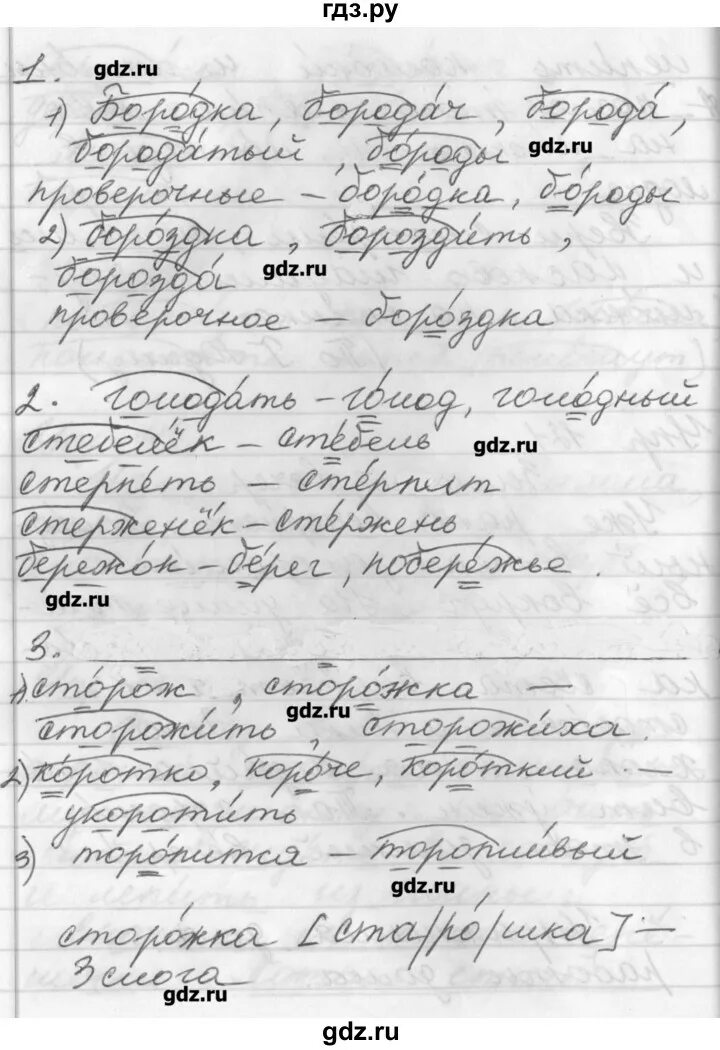 гдз.ру
1. gdz.ru
1) Боро́дка, борода́ч, борода́,
борода́тый, бо́роды gdz.ru
проверочные – боро́дка, бо́роды
2) боро́здка, борозди́ть,
gdz.ru
борозда́
проверочное – боро́здка
2. голода́ть – го́лод, голо́дный
стебелёк – сте́бель gdz.ru
стерпе́ть – сте́рпит
стерженёк – сте́ржень
бережо́к – бе́рег, побере́жье.
gdz.ru
3.
1) сто́рож, сторо́жка –
gdz.ru
сторожи́ть, сторожи́ха.
2) ко́ротко, коро́че, коро́ткий –
укороти́ть
3) торо́пится – торопли́вый
gdz.ru
сторо́жка [ста/ро́/шка] –
3 слога
gdz.ru
gdz.ru